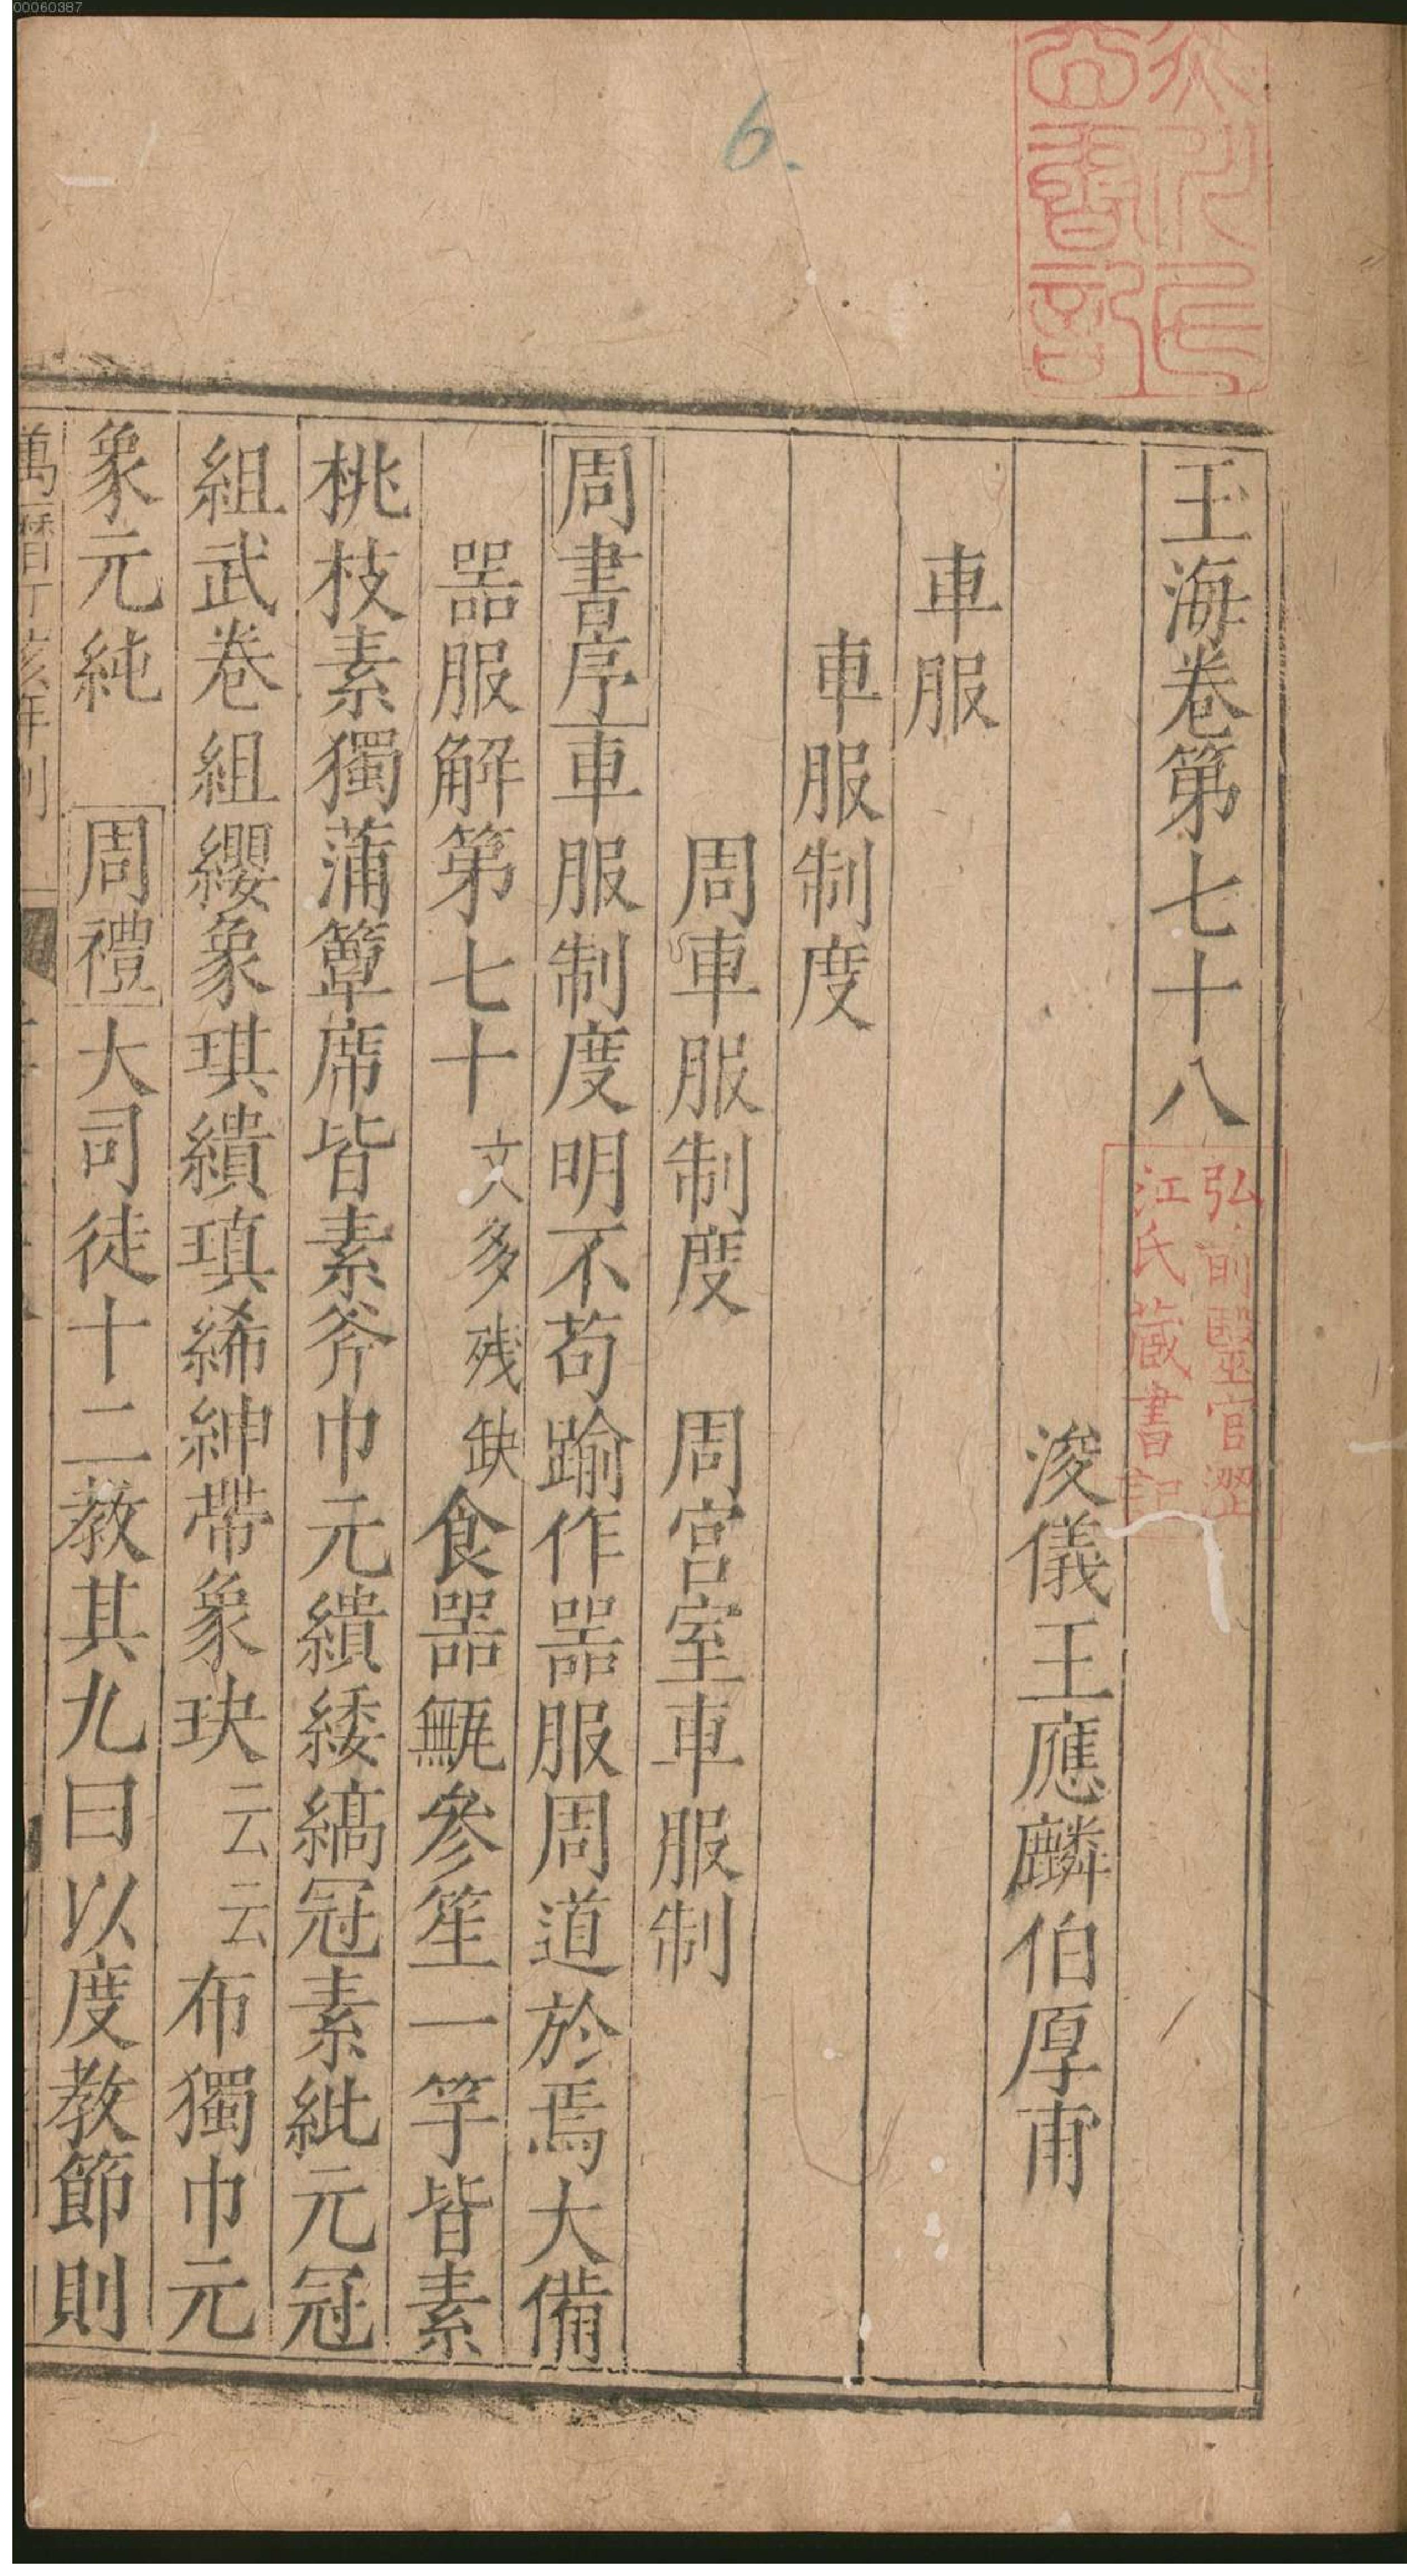 00060387
6.
玉海卷第七十八
弘前毉官澀
江氏藏書記
浚儀王應麟伯厚甫
車服
車服制度
周車服制度　周宮室車服制
周書序車服制度明不苟踰作器服周道於焉大備
器服解第七十文多残缺食器甒參笙一竽皆素
桃枝素獨蒲簟席皆素斧巾元繢緌縞冠素紕元冠
組武卷組纓象琪繢瑱絺紳帶象玦云云布獨巾元
象元純　周禮大司徒十二教其九曰以度教節則
萬曆丁亥年刊